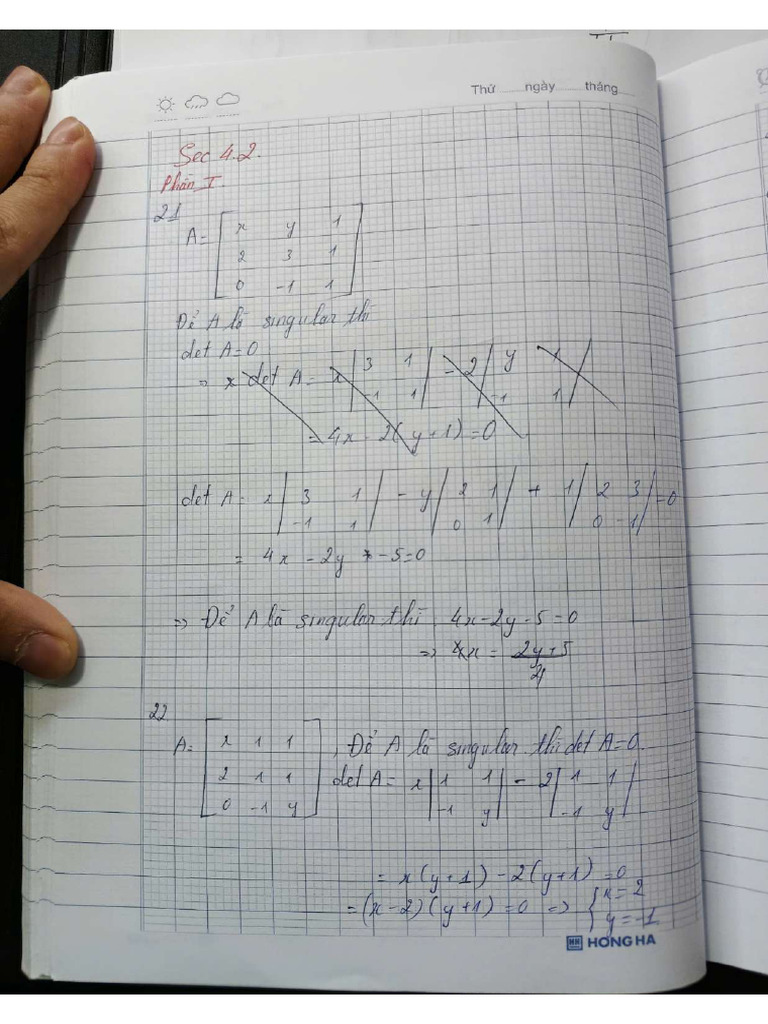 Thứ ngày tháng
Sec 4.2.
Phần I.
21
A= [ x y 1
2 3 1
0 -1 1 ]
Để A là singular thì
det A=0
⇒ x det A= x | 3 1 | - 2 | y 1 |
-1 1 -1 1
= 4x - 2(y+1) = 0
det A= x | 3 1 | - y | 2 1 | + 1 | 2 3 | =0
-1 1 0 1 0 -1
= 4x - 2y -5=0
⇒ Để A là singular thì 4x-2y-5=0
⇒ x = 2y+5
4
22
A= [ x 1 1
2 1 1
0 -1 y ]
, Để A là singular thì det A=0.
det A= x | 1 1 | - 2 | 1 1 |
-1 y -1 y
= x(y+1) -2(y+1) =0
=(x-2)(y+1) =0 ⇒ { x=2
y=-1
HH HONG HA